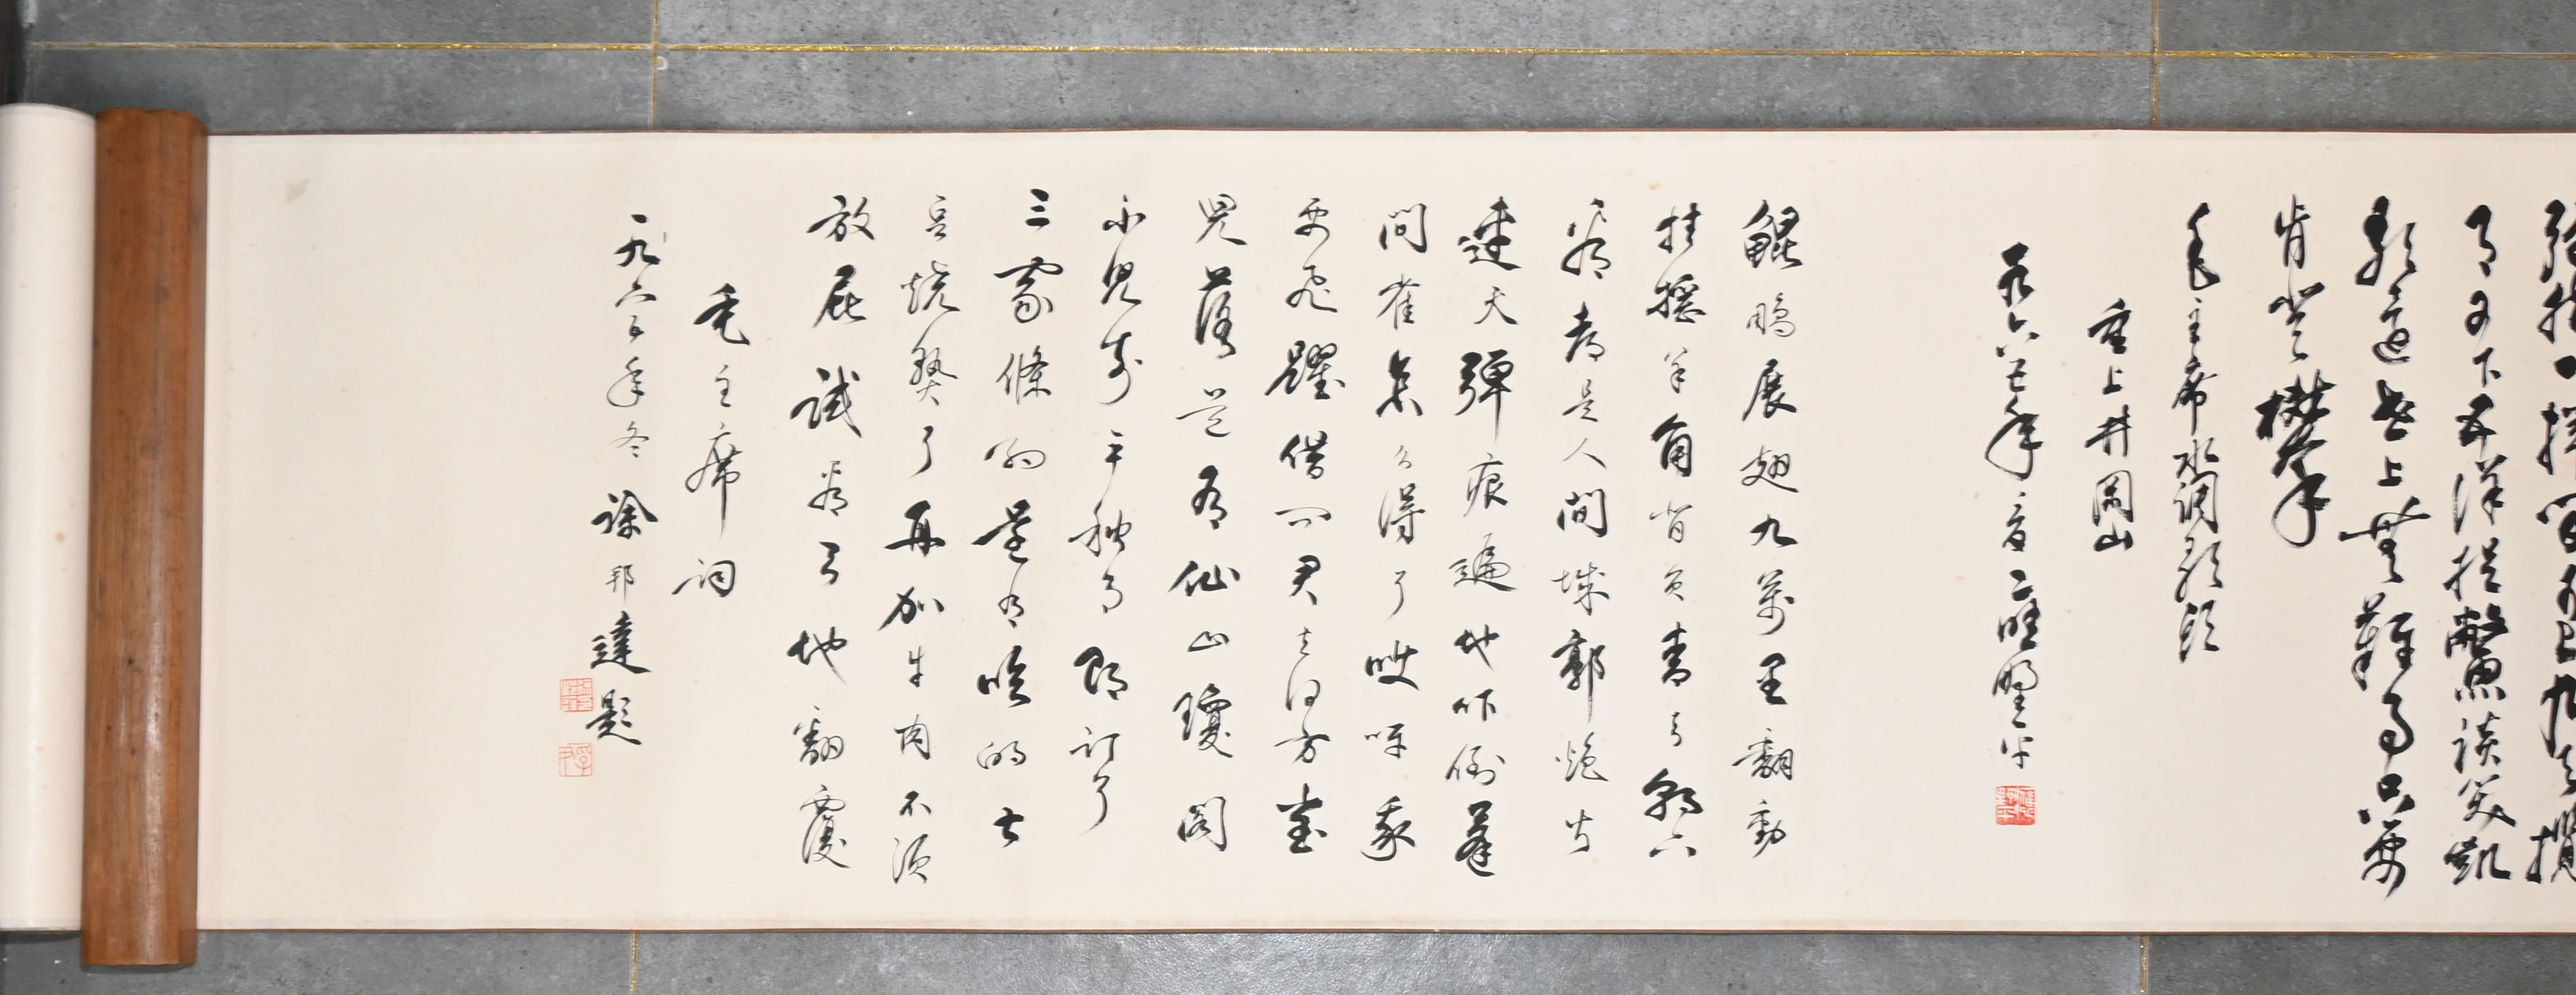 彈指一揮間可上九天攬
月可下五洋捉鱉談笑凱
歌還世上無難事只要
肯登攀
毛主席水調歌頭
重上井岡山
鯤鵬展翅九萬里翻動
扶搖羊角背負青天朝下
看都是人間城郭炮火
連天彈痕遍地吓倒蓬
間雀怎么得了哎呀我
要飛躍借問君去何方雀
兒答道有仙山瓊閣
不見前年秋月朗訂了
三家條約還有吃的土
豆燒熟了再加牛肉不須
放屁試看天地翻覆
毛主席詞
年冬 徐邦達題